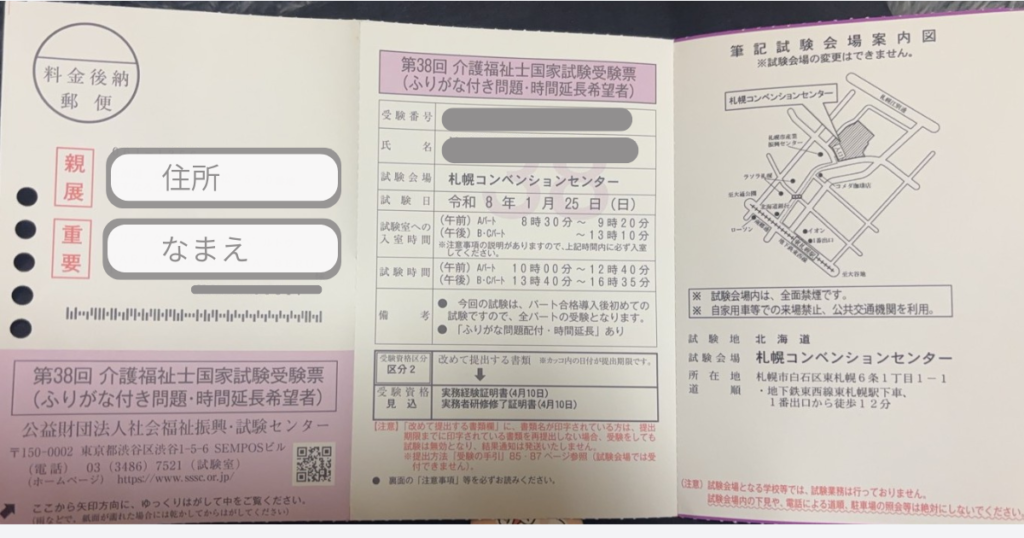 料金後納
郵便
親展
住所
重要
なまえ
第38回 介護福祉士国家試験受験票
(ふりがな付き問題・時間延長希望者)
公益財団法人社会福祉振興・試験センター
〒150-0002 東京都渋谷区渋谷1-5-6 SEMPOSビル
(電話) 03 (3486) 7521 (試験室)
(ホームページ) https://www.sssc.or.jp/
ここから矢印方向に、ゆっくりはがして中をご覧ください。
(雨などで、紙面が濡れた場合には乾かしてからはがしてください。)
第38回 介護福祉士国家試験受験票
(ふりがな付き問題・時間延長希望者)
受験番号
氏名
試験会場 札幌コンベンションセンター
試験日 令和 8 年 1 月 25 日 (日)
試験室への入室時間
(午前) Aパート 8時30分~ 9時20分
(午後) B・Cパート ~13時10分
※注意事項の説明がありますので、上記時間内に必ず入室
してください。
試験時間
(午前) Aパート 10時00分~12時40分
(午後) B・Cパート 13時40分~16時35分
備考
● 今回の試験は、パート合格導入後初めての
試験ですので、全パートの受験となります。
● 「ふりがな問題配付・時間延長」あり
受験資格区分
区分2
改めて提出する書類 ※カッコ内の日付が提出期限です。
受験資格
見込
実務経験証明書(4月10日)
実務者研修修了証明書(4月10日)
【注意】「改めて提出する書類欄」に、書類名が印字されている方は、提出
期限までに印字されている書類を再提出しない場合、受験をしても
試験は無効となり、結果通知は発送いたしません。
※提出方法『受験の手引』85・87ページ参照(試験会場では受
付できません)。
● 裏面の「注意事項」等を必ずお読みください。
筆記試験会場案内図
※試験会場の変更はできません。
札幌コンベンションセンター
札幌市産業
振興センター
ラソラ札幌
コメダ珈琲店
北海道銀行
ローソン
イオン
1番出口
至大谷地
※ 試験会場内は、全面禁煙です。
※ 自家用車等での来場禁止、公共交通機関を利用。
試験地 北海道
試験会場 札幌コンベンションセンター
所在地 札幌市白石区東札幌6条1丁目1-1
道順 ・地下鉄東西線東札幌駅下車、
1番出口から徒歩12分
(注意) 試験会場となる学校等では、試験業務は行っておりません。
試験会場内の下見や、電話による道順、駐車場の照会等は絶対にしないでください。